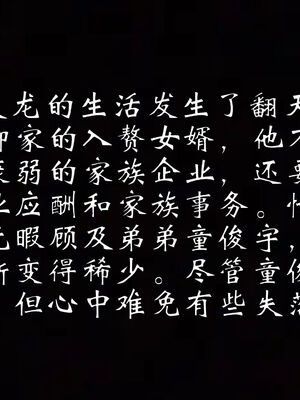 龙的生活发生了翻天
家的入赘女婿，他
弱的家族企业，还要
应酬和家族事务。忙
暇顾及弟弟童俊宇，
变得稀少。尽管童俊
但心中难免有些失落